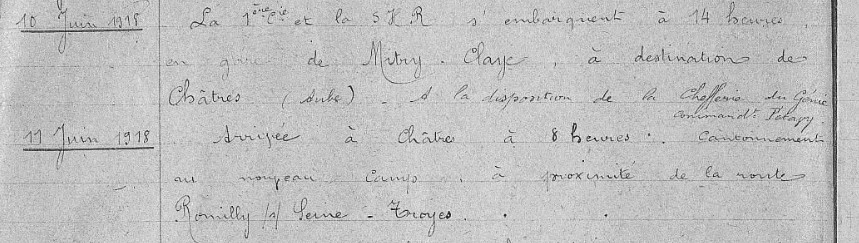 10 Juin 1918 La 1ère Cie et la S H R s'embarquent à 14 heures
en gare de Mitry-Claye, à destination de
Châtres (Aube). A la disposition de la Chefferie du Génie
commandt
11 Juin 1918 Arrivée à Châtres à 8 heures. Cantonnement
au nouveau camp, à proximité de la route
Romilly s/ Seine - Troyes.